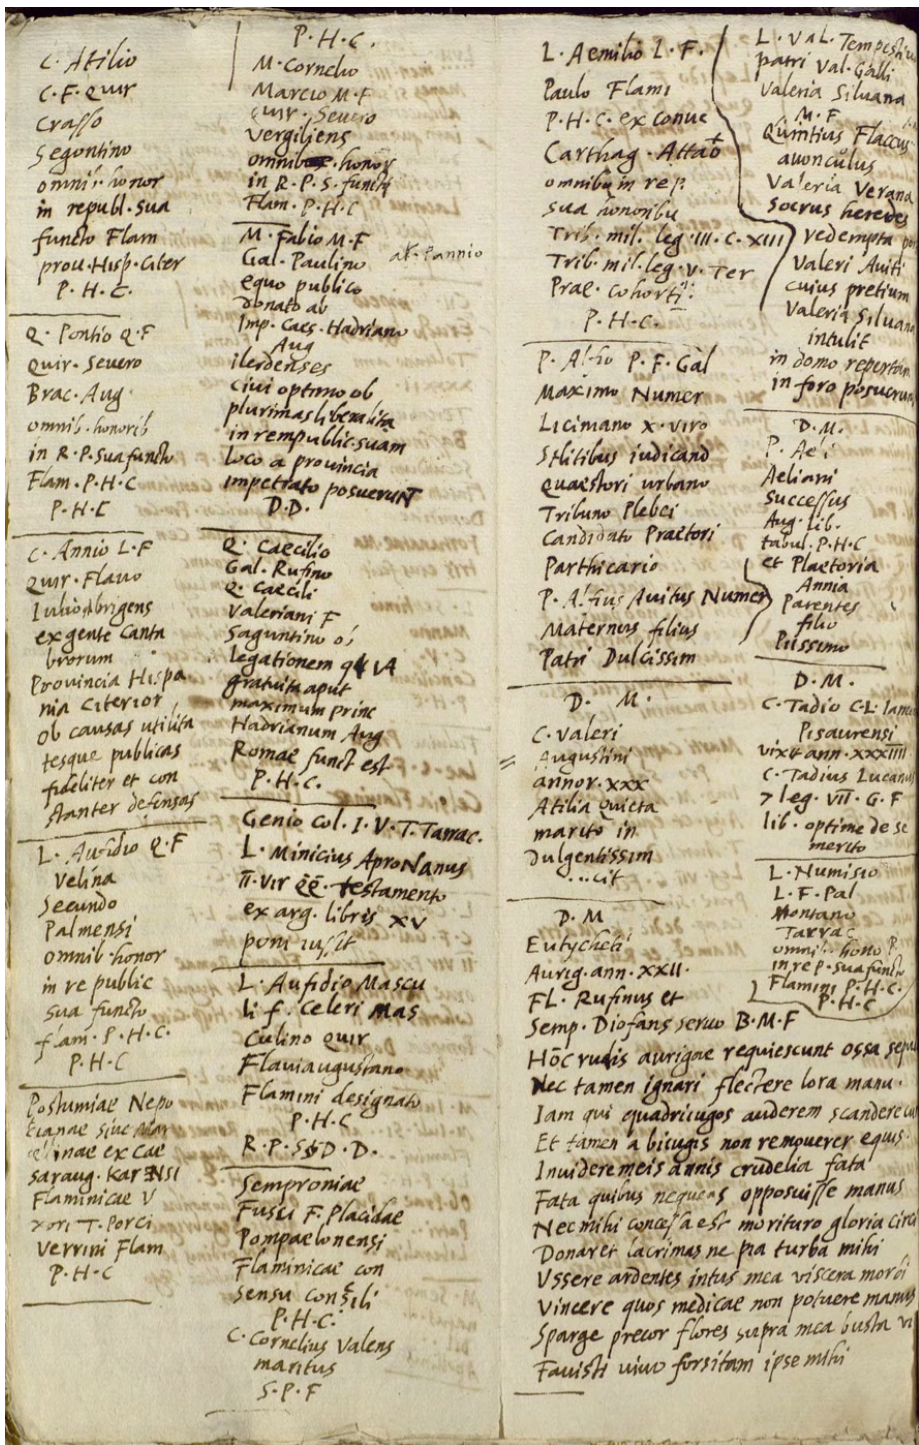 C. Atilio
C. F. Quir
Crasso
Segontino
omnib. honor
in republ. sua
functo Flam
prou. Hisp. Citer
P. H. C.
Q. Pontio Q. F
Quir. Seuero
Brac. Aug.
omnib. honorib
in R. P. sua functo
Flam. P. H. C
P. H. C
C. Annio L. F
Quir. Flauo
Iuliobrigens
ex gente Canta
brorum
Prouincia Hispa
nia Citerior
ob causas utilita
tesque publicas
fideliter et con
stanter defensas
L. Aufidio Q. F
Velina
Secundo
Palmensi
omnib honor
in re public
sua functo
flam. P. H. C.
P. H. C
Postumiae Nepo
tianae siue Mar
cellinae ex Cae
saraug. Karensi
Flaminicae V
xori T. Porci
Verrini Flam
P. H. C
P. H. C.
M. Cornelio
Marcio M. F
Quir. Seuero
Vergiliens
omnib. honor
in R. P. S. functi
Flam. P. H. C
M. Fabio M. F
Gal. Paulino al. Fannio
equo publico
donato ab
Imp. Caes. Hadriano
Aug
ilerdenses
ciui optimo ob
plurimas liberalita
in rempublic. suam
loco a prouincia
impetrato posuerunt
D. D.
Q. Caecilio
Gal. Rufino
Q. Caecili
Valeriani F
Saguntino ob
legationem qua
gratuita aput
maximum princ
Hadrianum Aug
Romae funct est
P. H. C.
Genio Col. I. V. T. Tarrac.
L. Minicius Apronianus
II. vir QQ. testamento
ex arg. libris XV
poni iussit
L. Aufidio Mascu
li f. Celeri Mas
culino Quir
Flauiaugustano
Flamini designato
P. H. C
R. P. S. D. D.
Semproniae
Fusci F. Placidae
Pompaelonensi
Flaminicae con
sensu consili
P. H. C.
C. Cornelius Valens
maritus
S. P. F
L. Aemilio L. F.
Paulo Flami
P. H. C. ex conue
Carthag. Attab
omnibu in rep.
sua honoribu
Trib. mil. leg. III. C. XIII
Trib. mil. leg. V. Ter
Prae. cohorti.
P. H. C.
P. Alfio P. F. Gal
Maximo Numer
Licimano X. viro
Stlitibus iudicand
Quaestori urbano
Tribuno Plebei
Candidato Praetori
Parthicario
P. Alfius Auitus Numer
Maternus filius
Patri Dulcissim
D. M.
C. Valeri
Augustini
annor. XXX
Atilia Quieta
marito in
Dulgentissim
...cit
D. M
Eutycheti
Aurig. ann. XXII.
FL. Rufinus et
Semp. Diofans seruo B. M. F
Hoc rudis aurigae requiescunt ossa sepul
Nec tamen ignari flectere lora manu.
Iam qui quadriiugos auderem scandere cur
Et tamen a biiugis non remouerer equis.
Inuidere meis annis crudelia fata
Fata quibus nequeas opposuisse manus
Nec mihi concessa est morituro gloria circi
Donaret lacrimas ne pia turba mihi
Vssere ardentes intus mea viscera morbi
Vincere quos medicae non potuere manus
Sparge precor flores supra mea busta vi
Fauisti uiuo forsitam ipse mihi
L. Val. Tempestiuo
patri Val. Galli
Valeria Siluana
M. F
Quintius Flaccus
auonculus
Valeria Verana
Socrus heredes
redempta
Valeri Auiti
cuius pretium
Valeria Siluana
intulit
in domo repertam
in foro posuerunt
D. M.
P. Aeli
Aeliani
Successus
Aug. lib.
tabul. P. H. C
et Plaetoria
Annia
Parentes
filio
Piissimo
D. M.
C. Tadio C. L.
Pisaurensi
vixit ann. XXXIIII
C. Tadius Lucanus
7 leg. VII. G. F
lib. optime de se
merito
L. Numisio
L. F. Pal
Montano
Tarrac
omnib. hono
in rep. sua functo
Flamini P. H. C.
P. H. C